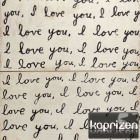 you, I love you, I
I love you, I love
love you, I love you,
I love you, I love you
I love you, I love you,
love you, I love you, I
you, I love you, I love
I love you, I
koprizen
love you, I love you,